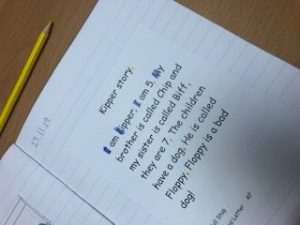 27.11.19
Kipper story.
I am Kipper. I am 5. My
brother is called Chip and
my sister is called Biff.
they are 7. The children
have a dog. He is called
Floppy. Floppy is a bad
dog!
Stop
Letter AF